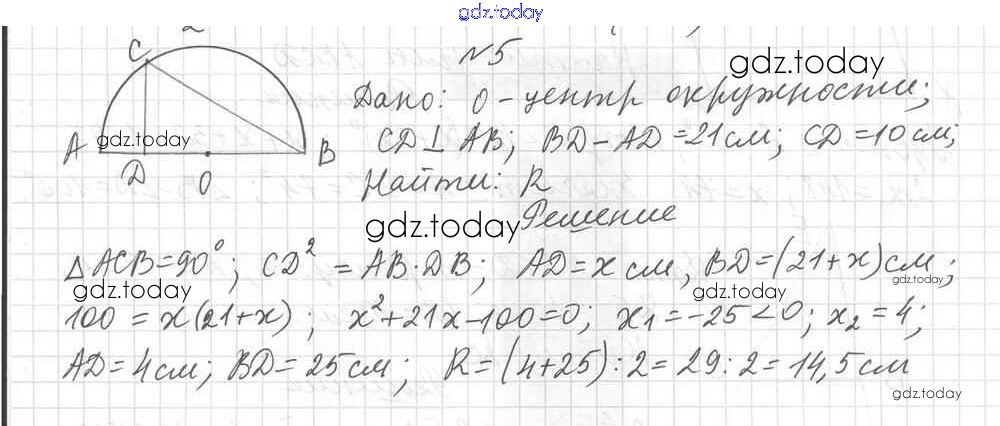 gdz.today
№5
C
gdz.today
Дано: O - центр окружности;
A gdz.today B
CD⊥AB; BD-AD=21см; CD=10см;
D O
Найти: R
gdz.today
Решение
△ACB=90°; CD²=AB·DB; AD=x см, BD=(21+x)см;
gdz.today gdz.today gdz.today
100=x(21+x); x²+21x-100=0; x₁=-25<0; x₂=4;
AD=4см; BD=25см; R=(4+25):2=29:2=14,5см
gdz.today